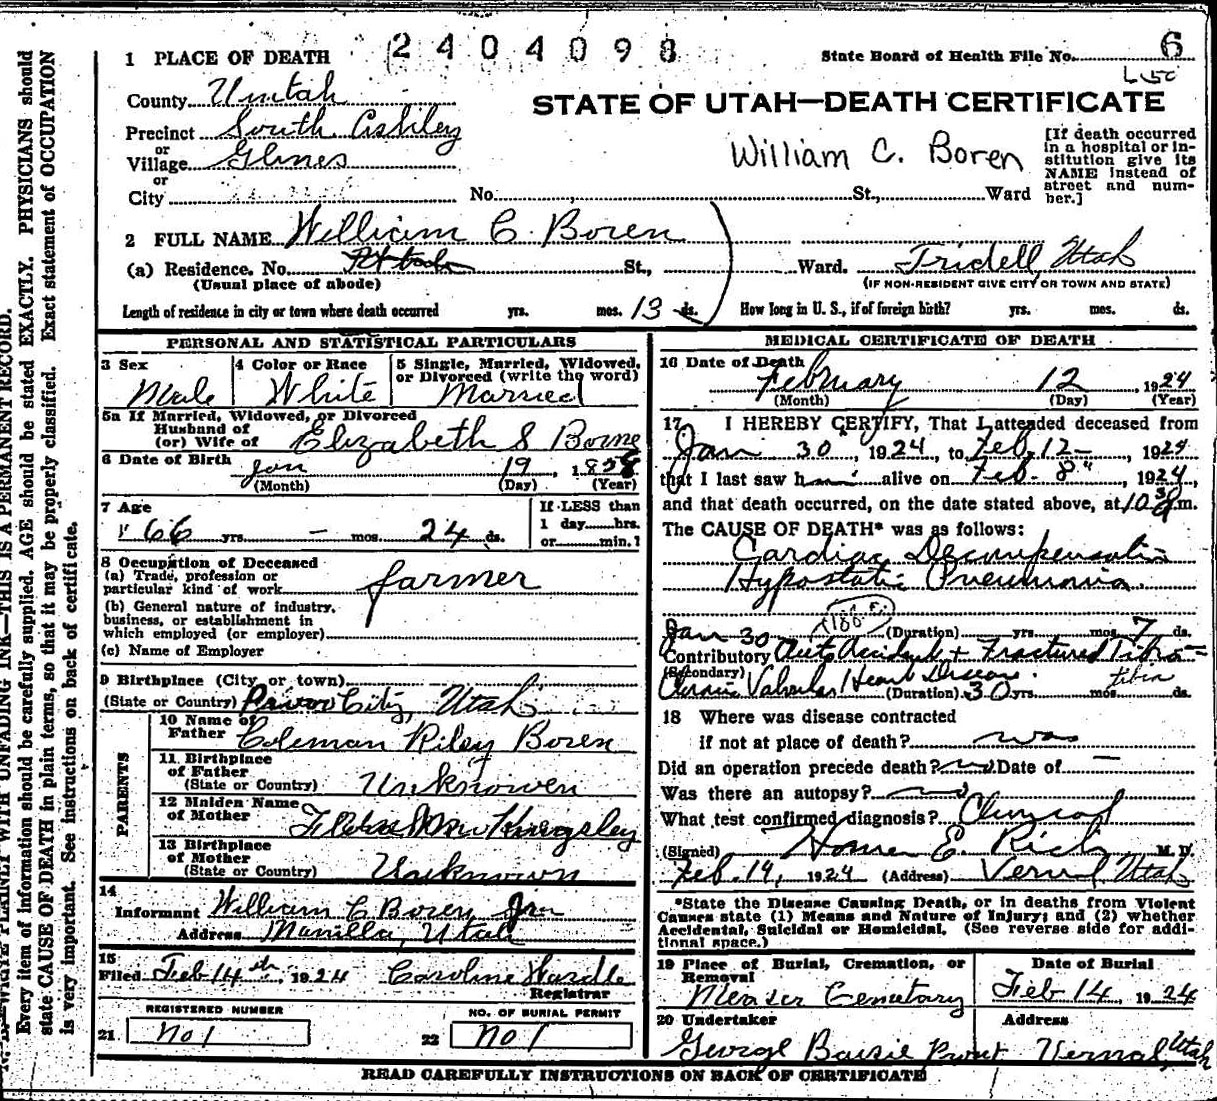 2404098
State Board of Health File No. 6
1 PLACE OF DEATH
County Uintah
STATE OF UTAH—DEATH CERTIFICATE
Precinct South Ashley
or
Village Glines
or
City
William C. Boren
[If death occurred
in a hospital or in-
stitution give its
NAME instead of
street and num-
ber.]
No. St., Ward
2 FULL NAME William C. Boren
(a) Residence. No. St., Ward. Tridell, Utah
(Usual place of abode) (IF NON-RESIDENT GIVE CITY OR TOWN AND STATE)
Length of residence in city or town where death occurred yrs. mos. 13 ds. How long in U. S., if of foreign birth? yrs. mos. ds.
PERSONAL AND STATISTICAL PARTICULARS
3 Sex 4 Color or Race 5 Single, Married, Widowed,
or Divorced (write the word)
Male White Married
5a If Married, Widowed, or Divorced
Husband of
(or) Wife of Elizabeth S Borne
6 Date of Birth Jan 19, 1858
(Month) (Day) (Year)
7 Age If LESS than
66 yrs. — mos. 24 ds. 1 day hrs.
or min.?
8 Occupation of Deceased
(a) Trade, profession or
particular kind of work farmer
(b) General nature of industry,
business, or establishment in
which employed (or employer)
(c) Name of Employer
9 Birthplace (City or town)
(State or Country) Provo City, Utah
PARENTS
10 Name of
Father Coleman Riley Boren
11 Birthplace
of Father
(State or Country) Unknowen
12 Maiden Name
of Mother Kingsley
13 Birthplace
of Mother
(State or Country) Unknown
14
Informant William C Boren, Jnr
Address Manilla, Utah
15
Filed Feb 14th, 1924 Caroline Hardle
Registrar
REGISTERED NUMBER NO. OF BURIAL PERMIT
21 No 1 22 No 1
MEDICAL CERTIFICATE OF DEATH
16 Date of Death
February 12, 1924
(Month) (Day) (Year)
17 I HEREBY CERTIFY, That I attended deceased from
Jan 30, 1924, to Feb. 12-, 1924
that I last saw him alive on Feb. 8", 1924,
and that death occurred, on the date stated above, at 10 m.
The CAUSE OF DEATH* was as follows:
Cardiac Decompensatin
Hypostatic Pneumonia.
Jan 30 (Duration) yrs. mos. 7 ds.
Contributory Auto Accident + Fractured Tibia
(Secondary) tibia
Chronic Valvular Heart Disease. (Duration) 30 yrs. mos. ds.
18 Where was disease contracted
if not at place of death? was
Did an operation precede death? no Date of —
Was there an autopsy? no
What test confirmed diagnosis? Clinical
(Signed) Homer E. Rich M. D.
Feb. 14, 1924 (Address) Vernal Utah
*State the Disease Causing Death, or in deaths from Violent
Causes state (1) Means and Nature of Injury; and (2) whether
Accidental, Suicidal or Homicidal. (See reverse side for addi-
tional space.)
19 Place of Burial, Cremation, or Date of Burial
Removal
Measer Cemetary Feb 14, 1924
20 Undertaker Address
George Vernal, Utah
READ CAREFULLY INSTRUCTIONS ON BACK OF CERTIFICATE
WRITE PLAINLY WITH UNFADING INK—THIS IS A PERMANENT RECORD.
Every item of information should be carefully supplied. AGE should be stated EXACTLY. PHYSICIANS should
state CAUSE OF DEATH in plain terms, so that it may be properly classified. Exact statement of OCCUPATION
is very important. See instructions on back of certificate.